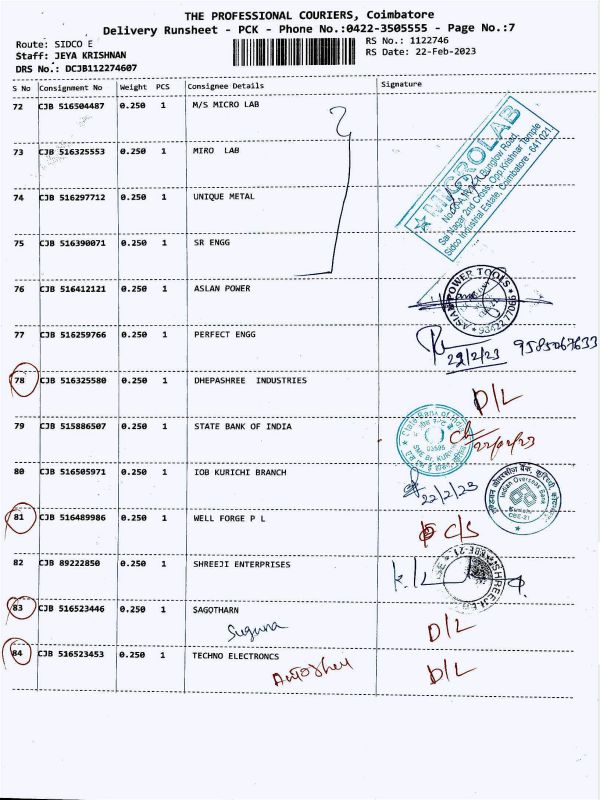 THE PROFESSIONAL COURIERS, Coimbatore
Delivery Runsheet - PCK - Phone No.:0422-3505555 - Page No.:7
Route: SIDCO E
RS No.: 1122746
Staff: JEYA KRISHNAN
RS Date: 22-Feb-2023
DRS No.: DCJB112274607
S No Consignment No Weight PCS Consignee Details Signature
72 CJB 516504487 0.250 1 M/S MICRO LAB
73 CJB 516325553 0.250 1 MIRO LAB
MICROLAB
Sai Nagar 2nd Cross, Opp.Krishnar Temple
Sidco Industrial Estate, Coimbatore - 641 021.
74 CJB 516297712 0.250 1 UNIQUE METAL
75 CJB 516390071 0.250 1 SR ENGG
76 CJB 516412121 0.250 1 ASLAN POWER
ASIAN POWER TOOLS
93422 77069
77 CJB 516259766 0.250 1 PERFECT ENGG
22/2/23 9585067633
78 CJB 516325580 0.250 1 DHEPASHREE INDUSTRIES
D/L
79 CJB 515886507 0.250 1 STATE BANK OF INDIA
State Bank of India
03595
22/02/23
80 CJB 516505971 0.250 1 IOB KURICHI BRANCH
22/2/23
Indian Overseas Bank
Kurichi
CBE-21
81 CJB 516489986 0.250 1 WELL FORGE P L
C/S
82 CJB 89222850 0.250 1 SHREEJI ENTERPRISES
83 CJB 516523446 0.250 1 SAGOTHARN
Suguna
D/L
84 CJB 516523453 0.250 1 TECHNO ELECTRONCS
D/L